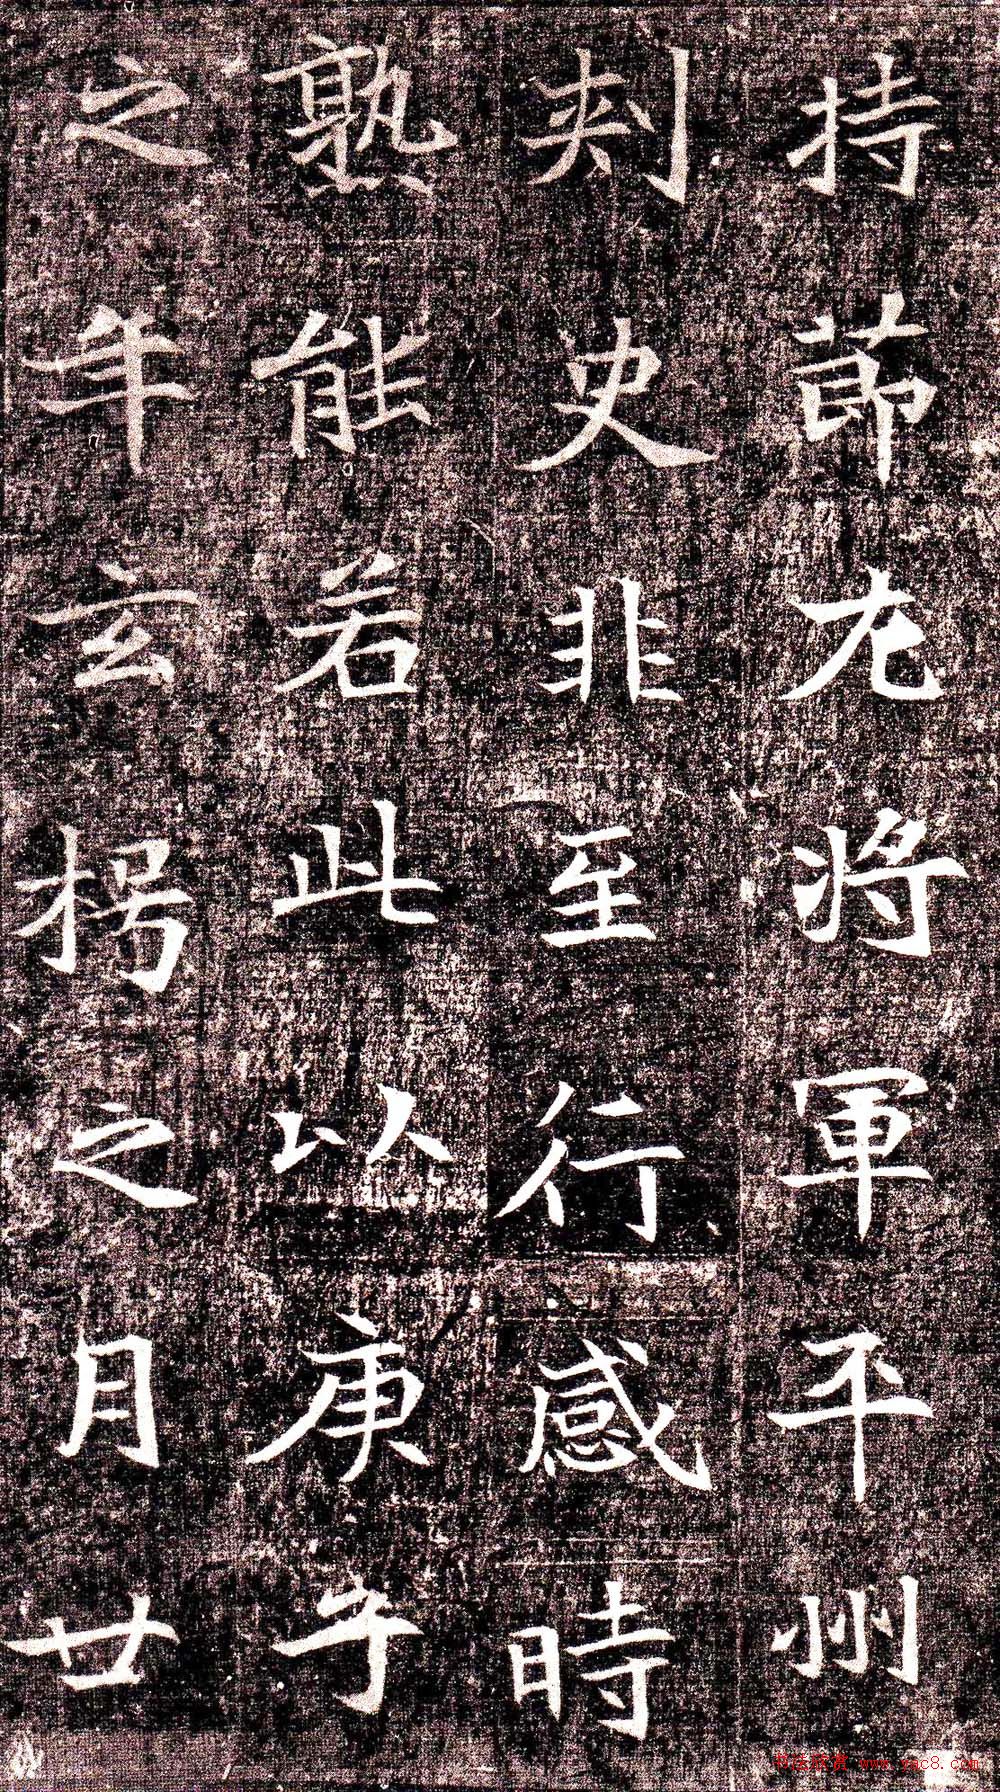 持節左將軍平州
刾史非至行感時
熟能若此以庚子
之年玄枵之月廿
书法欣赏 www.yac8.com